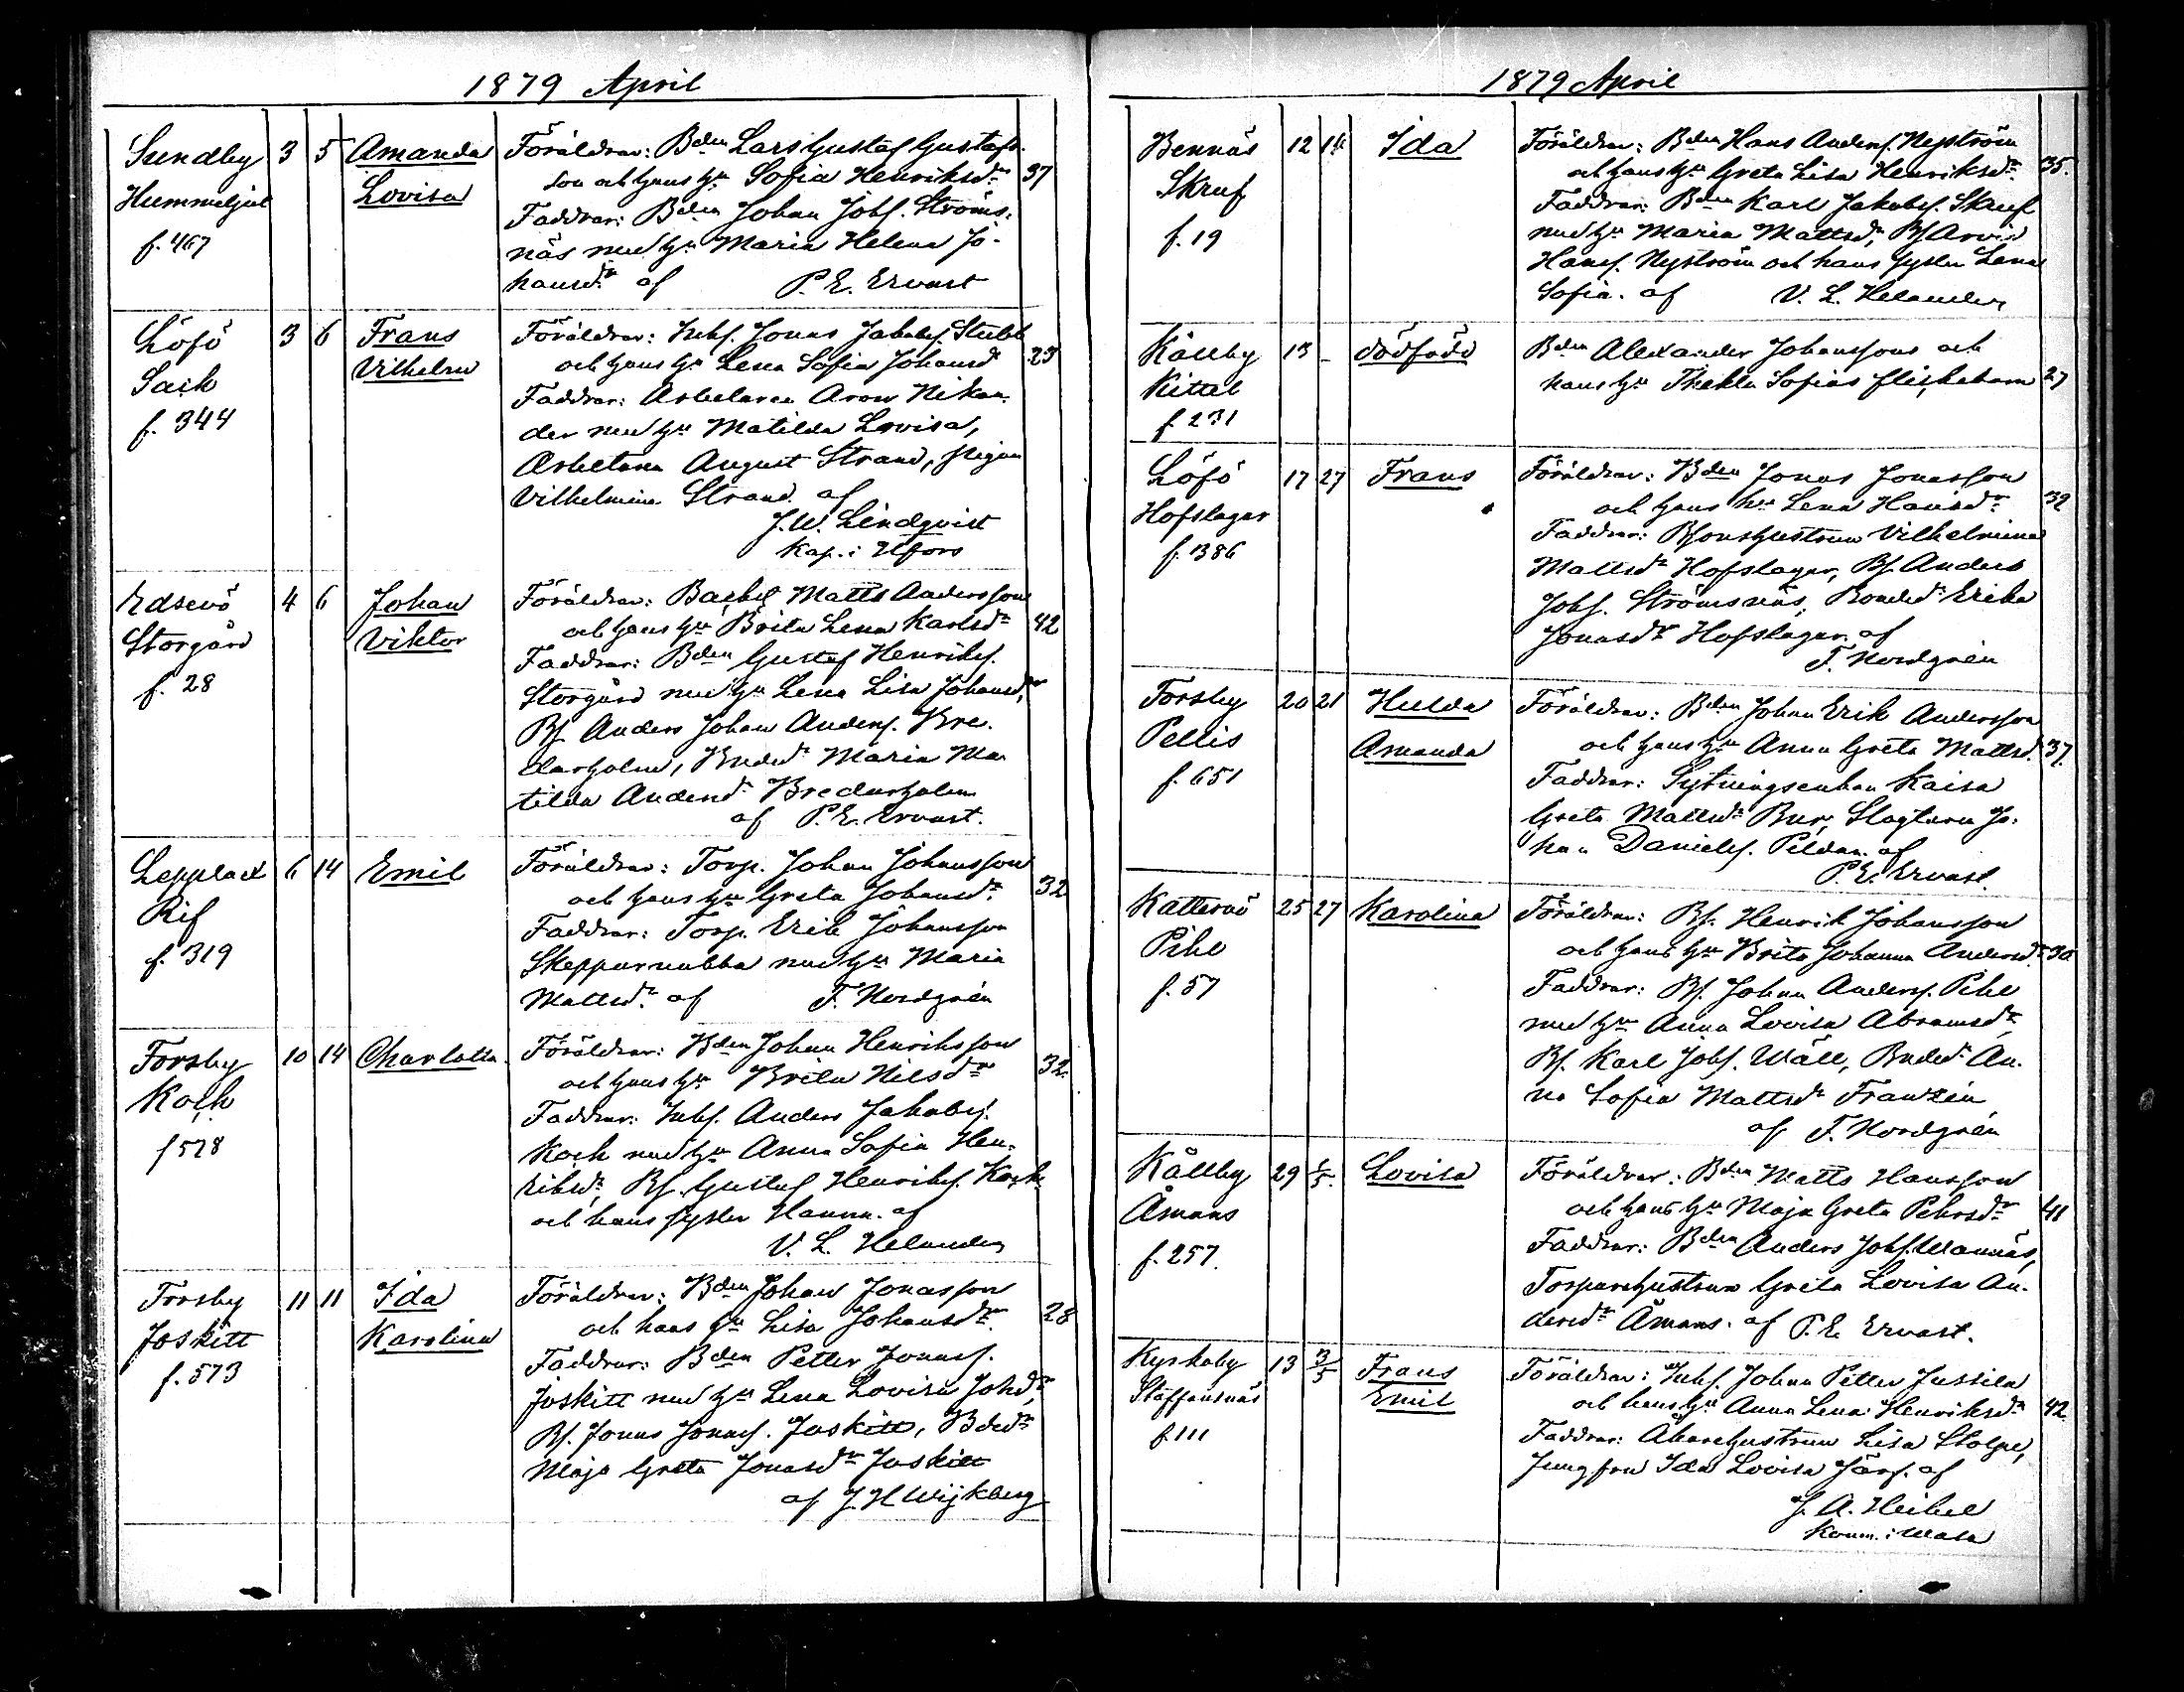 1879 April
Sundby 3 5 Amanda Föräldrar: Bden Lars Gustaf Gustafs-
Hummeljul Lovisa son och hans hu Sofia Henriksdr 37
f. 467 Faddrar: Bden Johan Johs. Ströms-
näs med hu Maria Helena Jo-
hansdr af P. E. Ervast
Löfö 3 6 Frans Föräldrar: Inhs. Jonas Jakobs. Stubb
Sack Vilhelm och hans hu Lena Sofia Johansd 23
f. 344 Faddrar: Arbetaren Aron Nikan-
der med hu Matilda Lovisa,
Arbetaren August Strand, pigan
Vilhelmina Strand af
J. W. Lindqvist
Kap. i Hfors
Edsevö 4 6 Johan Föräldrar: Backst. Matts Andersson
Storgård Viktor och hans hu Brita Lena Karlsdr 42
f. 28 Faddrar: Bden Gustaf Henriks.
Storgård med hu Lena Lisa Johansdr,
Bs. Anders Johan Anders. Bre-
darholm, Bndedr Maria Ma-
tilda Andersdr Bredarholm
af P. E. Ervast.
Lepplax 6 14 Emil Föräldrar: Torp. Johan Johansson
Rif och hans hu Greta Johansdr. 32
f. 319 Faddrar: Torp. Erik Johansson
Skepparnabba med hu Maria
Mattsdr. af F. Nordgrén
Forsby 10 14 Charlotta Föräldrar: Bden Johan Henriksson
Kack och hans hu Brita Nilsdr 32
f 528 Faddrar: Inhs. Anders Jakobs.
Kack med hu Anna Sofia Hen-
riksdr, Bs. Gustaf Henriks. Kack
och hans syster Hanna. af
V. L. Helander
Forsby 11 11 Ida Föräldrar: Bden Johan Jonasson
Joskitt Karolina och hans hu Lisa Johansdr. 28
f. 573 Faddrar: Bden Petter Jonass.
Joskitt med hu Lena Lovisa Johdr,
Bs. Jonas Jonass. Joskitt, Bdedr
Maja Greta Jonasdr Joskitt
af J. H. Wijkberg
1879 April
Bennäs 12 14 Ida Föräldrar: Bden Hans Anders. Nyström
Skruf och hans hu Greta Lisa Henriksdr. 35.
f. 19 Faddrar: Bden Karl Jakobs. Skruf
med hu Maria Mattsdr, Bs Arvid
Hans. Nyström och hans syster Lena
Sofia. af V. L. Helander
Kållby 13 - dödfödd Bden Alexander Johanssons och
Kittel hans hu Thekla Sofias flickebarn 27
f. 231
Löfö 17 27 Frans Föräldrar: Bden Jonas Jonasson
Hofslagar och hans hu Lena Hansdr 32
f. 386 Faddrar: Bsonshustrun Vilhelmina
Mattsdr Hofslagar, Bs. Anders
Johs. Strömsnäs, Bondedr Erika
Jonasdr Hofslagar. af
F. Nordgrén
Forsby 20 21 Hulda Föräldrar: Bden Johan Erik Andersson
Pellis Amanda och hans hu Anna Greta Mattsd. 37.
f. 651 Faddrar: Sytningsenkan Kaisa
Greta Mattsdr Bur, Slagtaren Jo-
han Daniels. Peldan. af
P. E. Ervast.
Katternö 25 27 Karolina Föräldrar: Bs. Henrik Johansson
Pihl och hans hu Brita Johanna Andersdr 30
f. 57 Faddrar: Bs. Johan Anders. Pihl
med hu Anna Lovisa Abramsdr,
Bs. Karl Johs. Wäll, Bndedr An-
na Sofia Mattsdr Franzén,
af F. Nordgrén
Kållby 29 1/5 Lovisa Föräldrar: Bden Matts Hansson
Åmans och hans hu Maja Greta Pehrsdr 41
f. 257. Faddrar: Bden Anders Johs. Mannäs,
Torparehustrun Greta Lovisa An-
dersdr Åmans. af P. E. Ervast.
Kyrkoby 13 3/5 Frans Föräldrar: Inhs. Johan Petter Jussila
Staffansnäs Emil och hans hu Anna Lena Henriksdr 42
f. 111 Faddrar: Åkarehustrun Lisa Stolpe,
Jungfru Ida Lovisa Järf. af
J. A. Heikel
Komm. i Wasa